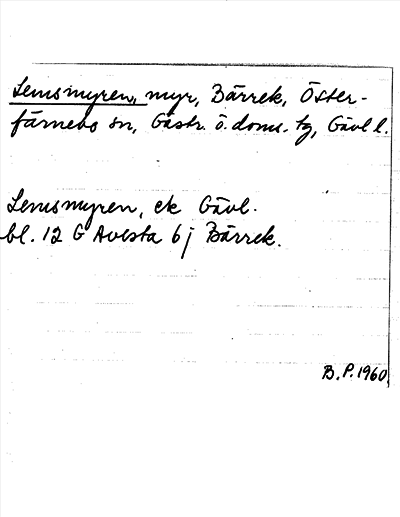 Lemsmyren, myr, Bärrek, Öster-
färnebo sn, Gästr. ö. doms. tg, Gävl l.
Lemsmyren, ek Gävl.
bl. 12 G Avesta 6 j Bärrek.
B.P. 1960